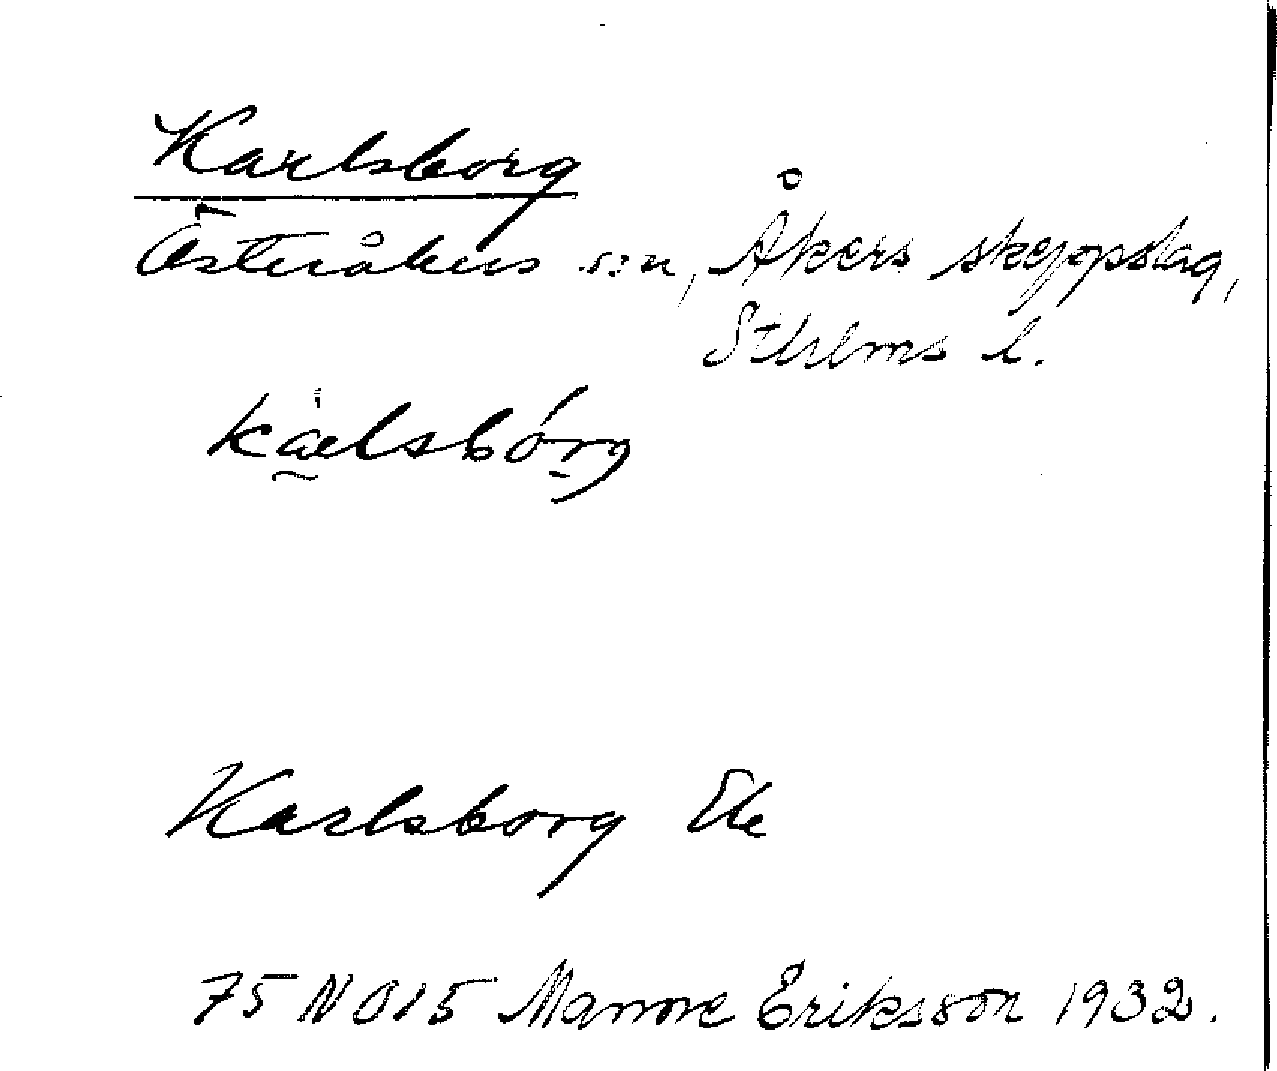 Karlsborg
Österåkers sn, Åkers skeppslag,
Sthlms l.
kàlsbórg
Karlsborg Ek
75 NO15 Manne Eriksson 1932.